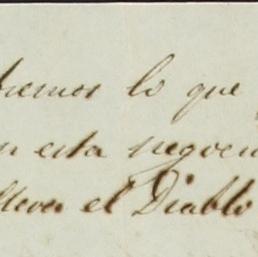 tremos lo que
n esta negoci
llever el Diablo